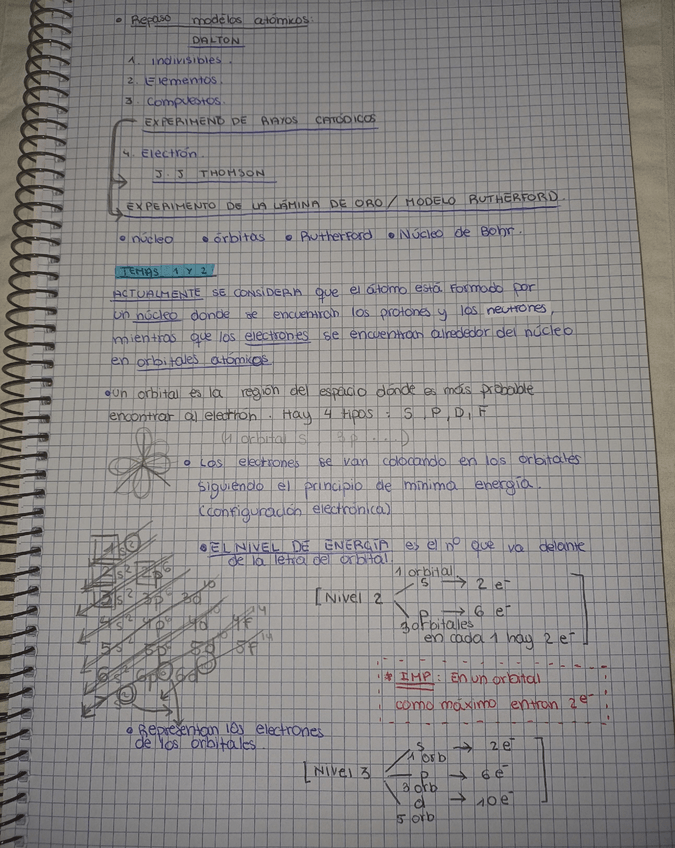 • Repaso modelos atómicos:
DALTON
1. Indivisibles.
2. Elementos.
3. Compuestos.
EXPERIMEND DE RAYOS CATÓDICOS
4. Electrón.
J.J THOMSON
EXPERIMENTO DE LA LÁMINA DE ORO / MODELO RUTHERFORD.
• núcleo • órbitas • Rutherford • Núcleo de Bohr.
TEMAS 1 Y 2
ACTUALMENTE SE CONSIDERA que el átomo está formado por
un núcleo donde se encuentran los protones y los neutrones,
mientras que los electrones se encuentran alrededor del núcleo
en orbitales atómicos
• Un orbital es la región del espacio donde es más probable
encontrar al electrón. Hay 4 tipos: S, P, D, F
(1 orbital s 3p ...)
• Los electrones se van colocando en los orbitales
siguiendo el principio de mínima energía.
(configuración electrónica)
• EL NIVEL DE ENERGÍA es el nº que va delante
de la letra del orbital
1s²
2s² 2p⁶
3s² 3p⁶ 3d¹⁰
4s² 4p⁶ 4d¹⁰ 4f¹⁴
5s² 5p⁶ 5d¹⁰ 5f¹⁴
6s² 6p⁶ 6d¹⁰
7s²
• Representan los electrones
de los orbitales.
1 orbital
[Nivel 2 s → 2 e⁻
p → 6 e⁻
3 orbitales
en cada 1 hay 2 e⁻]
* IMP: En un orbital
como máximo entran 2e⁻
[Nivel 3 s → 2e⁻
1 orb
p → 6e⁻
3 orb
d → 10e⁻]
5 orb